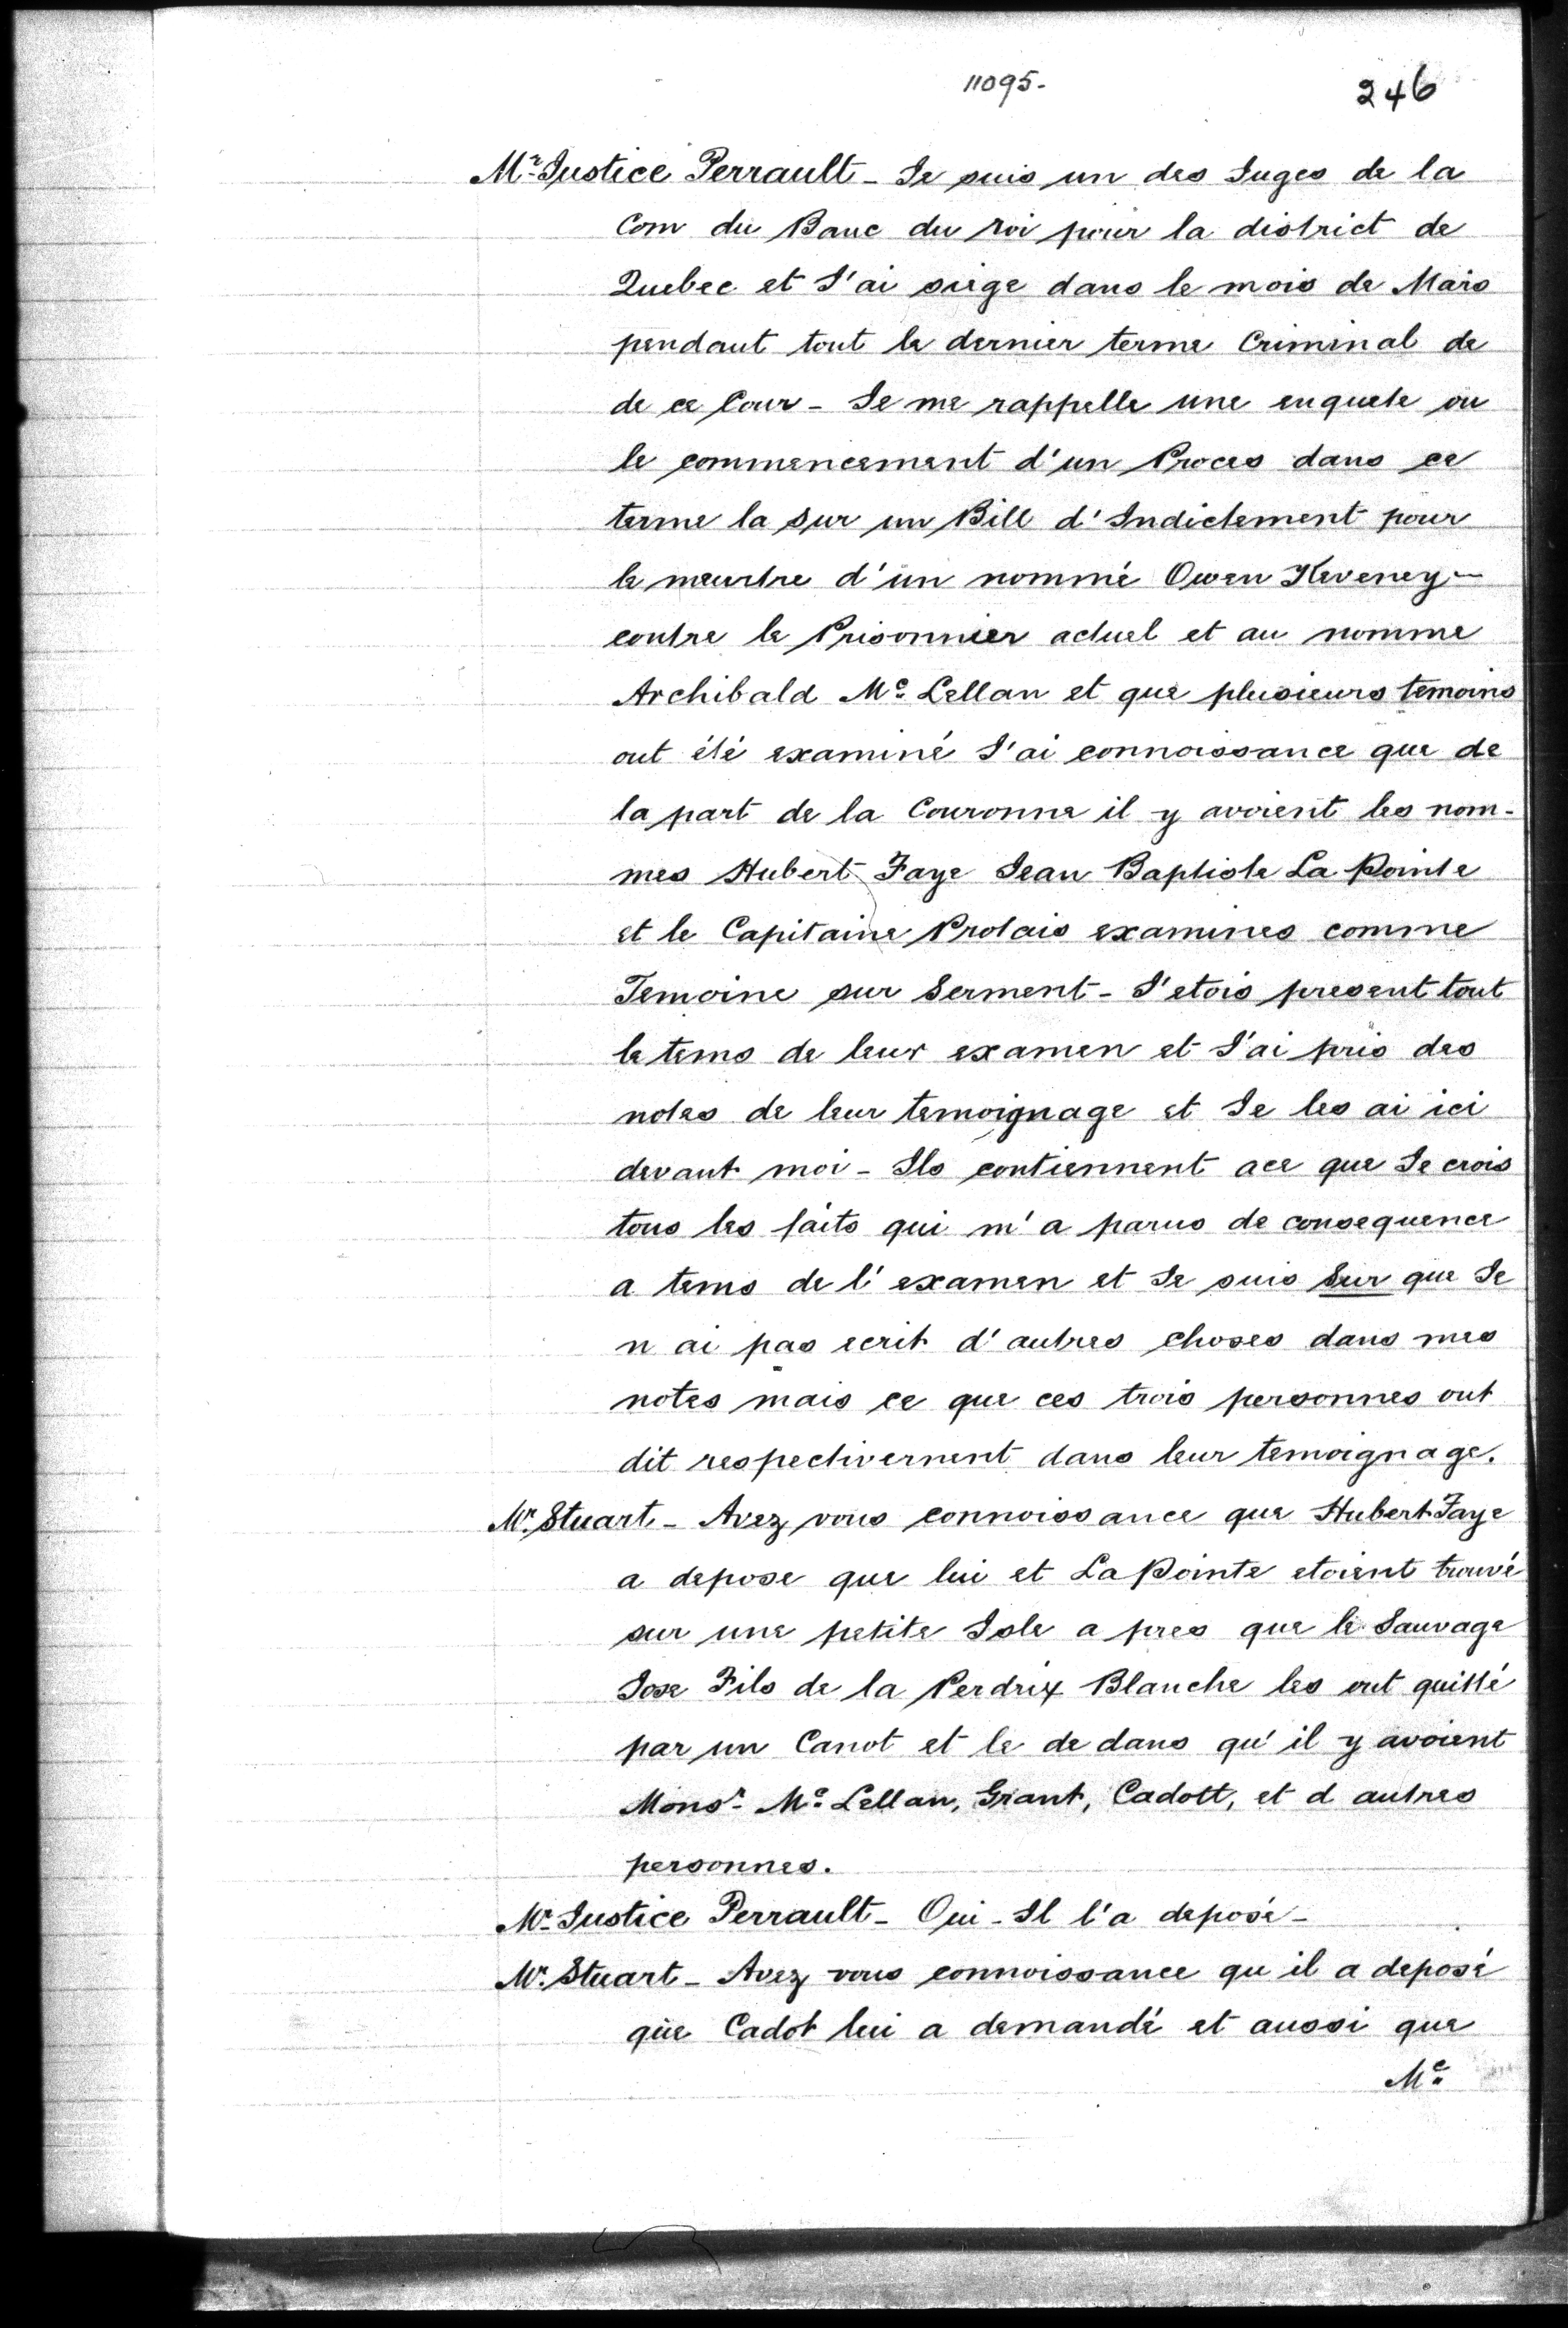 11095- 246
Mr. Justice Perrault - Je suis un des Juges de la
Com du Banc du roi pour la district de
Quebec et J'ai siege dans le mois de Mars
pendant tout le dernier terme Criminal de
de ce Cour - Je me rappelle une enquete ou
le commencement d'un Proces dans ce
terme la sur un Bill d'Indictement pour
le meurtre d'un nommé Owen Keveney -
contre le Prisonnier actuel et au nomme
Archibald Mc. Lellan et que plusieurs temoins
ont été examiné J'ai connoissance que de
la part de la Couronne il y avoient les nom-
mes Hubert Faye Jean Baptiste La Pointe
et le Capitaine Protais examines comme
Temoine sur Serment - J'etois present tout
le tems de leur examen et J'ai pris des
notes de leur temoignage et Je les ai ici
devant moi - Ils contiennent ace que Je crois
tous les faits qui m'a parus de consequence
a tems de l'examen et Je suis Sur que Je
n ai pas ecrit d'autres choses dans mes
notes mais ce que ces trois personnes ont
dit respectivement dans leur temoignage.
Mr. Stuart - Avez vous connoissance que Hubert Faye
a depose que lui et La Pointe etoient trouvé
sur une petite Isle a pres que le Sauvage
Jose Fils de la Perdrix Blanche les ont quitté
par un Canot et le de dans qu'il y avoient
Monsr. Mc. Lellan, Grant, Cadott, et d autres
personnes.
Mr. Justice Perrault - Oui - Il l'a deposé -
Mr. Stuart - Avez vous connoissance qu il a deposé
que Cadot lui a demandé et aussi que
Mc.